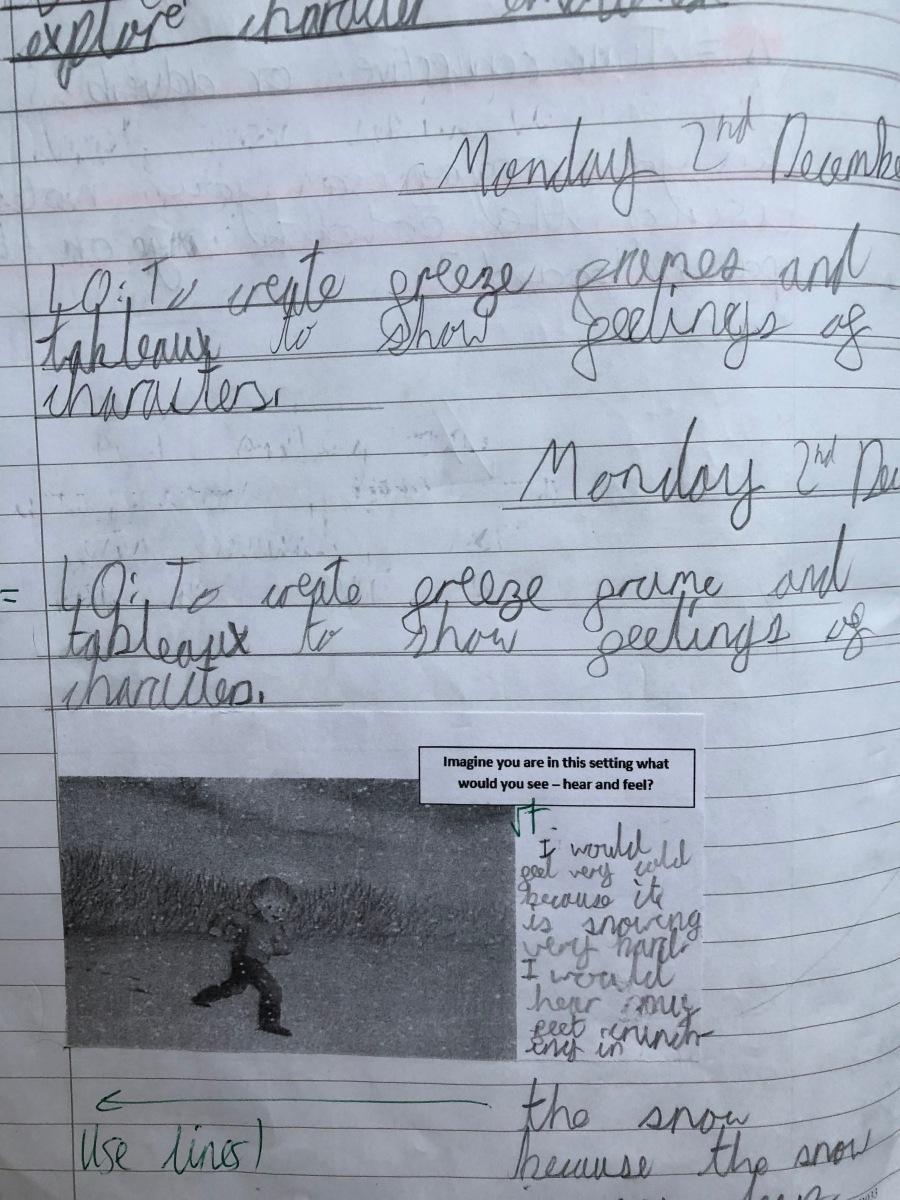 explore character
Monday 2nd Decembe
LO: To create freeze frames and
tableaux to show feelings of
characters.
Monday 2nd Dec
= LO: To create freeze frame and
tableaux to show feelings of
charcters.
Imagine you are in this setting what
would you see – hear and feel?
I would
feel very cold
because it
is snowing
very hard.
I would
hear my
feet crunch-
ing in
the snow
because the snow
Use lines!